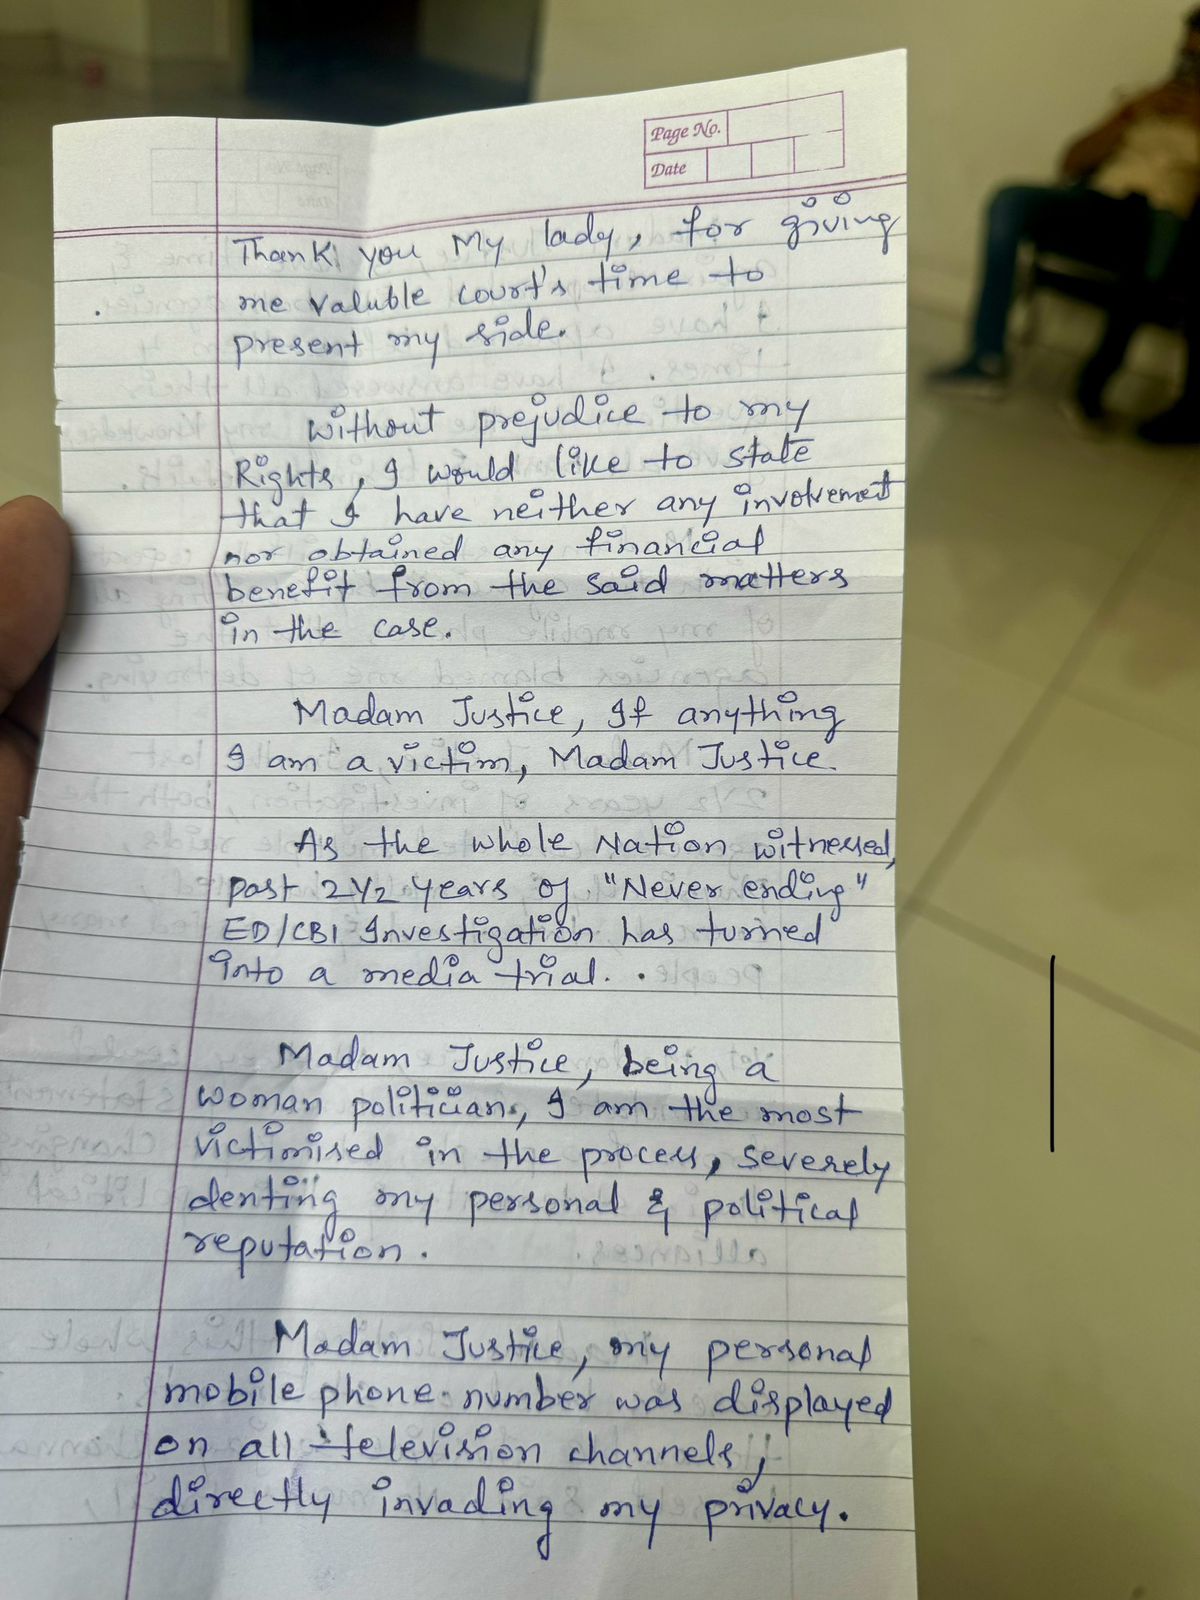 Page No.
Date
Thank you My lady, for giving
me valuble court's time to
present my side.
without prejudice to my
Rights, I would like to state
that I have neither any involvement
nor obtained any financial
benefit from the said matters
in the case.
Madam Justice, If anything
I am a victim, Madam Justice.
As the whole Nation witnessed,
past 2 1/2 years of "Never ending"
ED/CBI Investigation has turned
into a media trial.
Madam Justice, being a
woman politician, I am the most
victimised in the process, severely
denting my personal & political
reputation.
Madam Justice, my personal
mobile phone number was displayed
on all television channels,
directly invading my privacy.